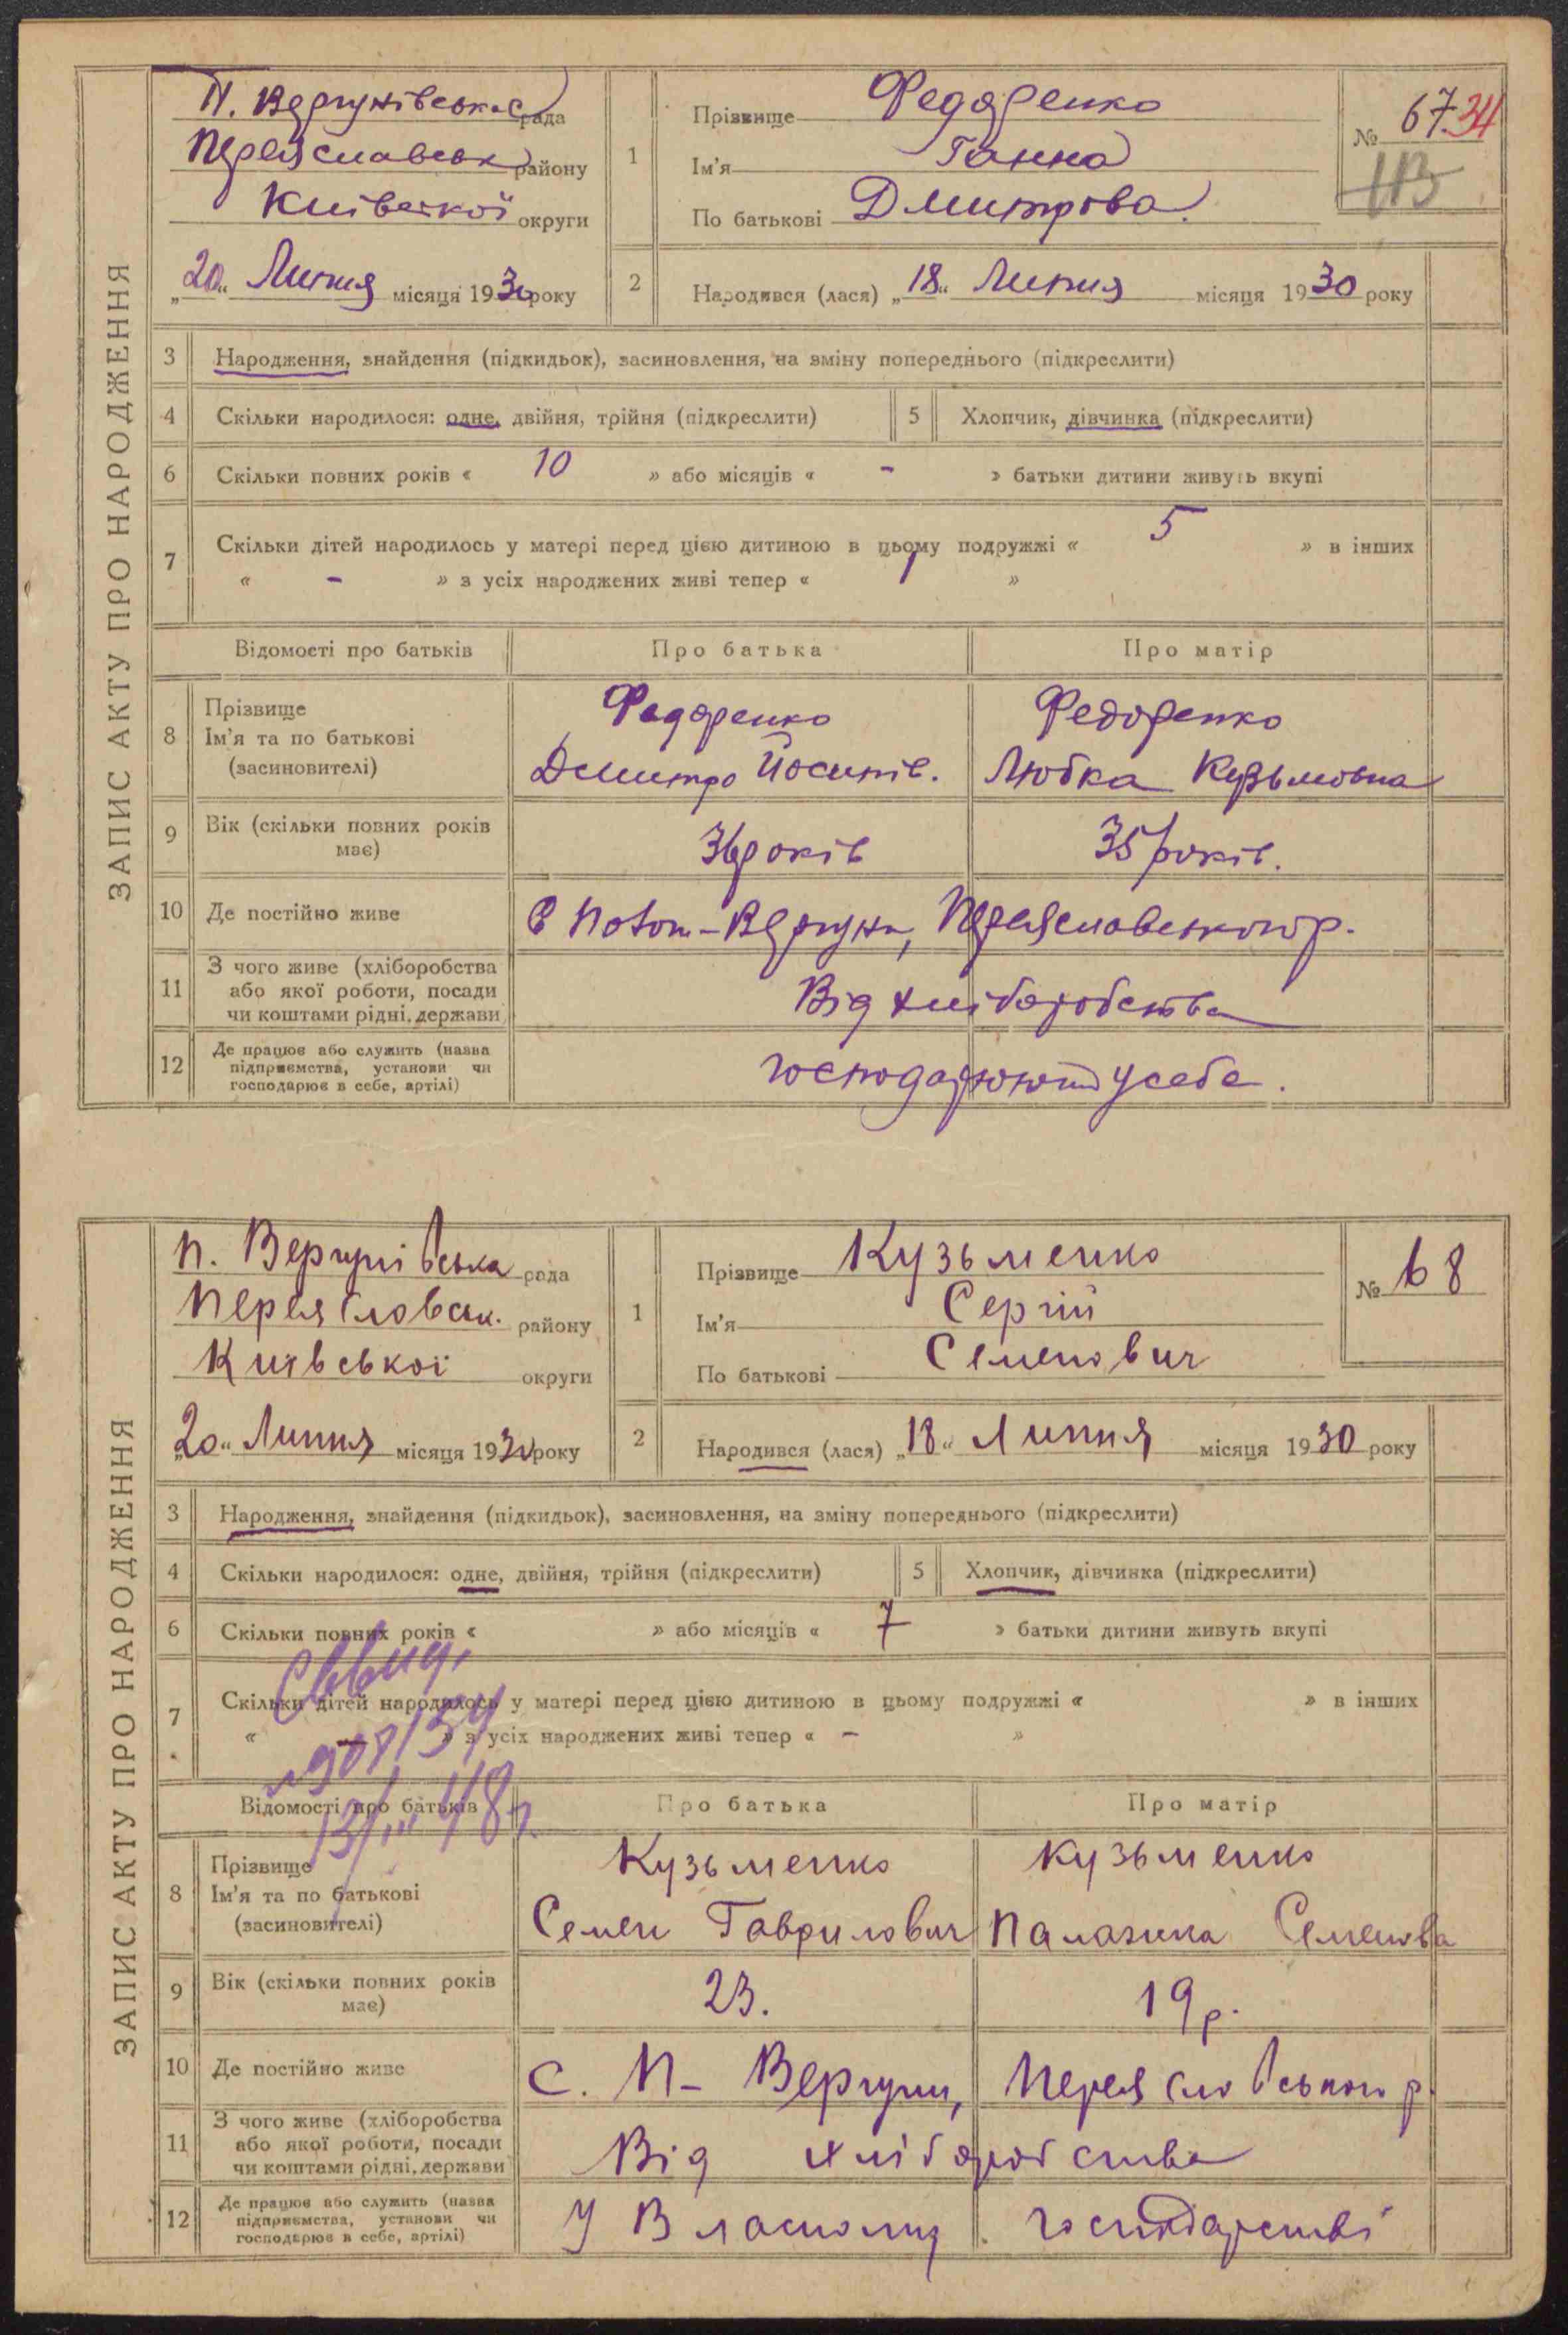 ЗАПИС АКТУ ПРО НАРОДЖЕННЯ
П. Вергунівська рада
Переяславськ району
Київської округи
„20“ Липня місяця 1930 року
1 Прізвище Федоренко
Ім'я Ганна
По батькові Дмитрова.
№ 67 34
113
2 Народився (лася) „18“ Липня місяця 1930 року
3 Народження, знайдення (підкидьок), засиновлення, на зміну попереднього (підкреслити)
4 Скільки народилося: одне, двійня, трійня (підкреслити) 5 Хлопчик, дівчинка (підкреслити)
6 Скільки повних років « 10 » або місяців « - » батьки дитини живуть вкупі
7 Скільки дітей народилось у матері перед цією дитиною в цьому подружжі « 5 » в інших
« - » з усіх народжених живі тепер « 1 »
Відомості про батьків Про батька Про матір
8 Прізвище Ім'я та по батькові (засиновителі)
Федоренко Федоренко
Дмитро Йосипів. Любка Кузьмовна
9 Вік (скільки повних років має) 36 років 35 років.
10 Де постійно живе В Поток-Вергуни, Переяславського р.
11 З чого живе (хліборобства або якої роботи, посади чи коштами рідні, держави Від хліборобства
12 Де працює або служить (назва підприємства, установи чи господарює в себе, артілі) господарюють у себе.
ЗАПИС АКТУ ПРО НАРОДЖЕННЯ
П. Вергунівська рада
Переяславськ. району
Київської округи
„20“ Липня місяця 1930 року
1 Прізвище Кузьменко
Ім'я Сергій
По батькові Семенович
№ 68
2 Народився (лася) „18“ Липня місяця 1930 року
3 Народження, знайдення (підкидьок), засиновлення, на зміну попереднього (підкреслити)
4 Скільки народилося: одне, двійня, трійня (підкреслити) 5 Хлопчик, дівчинка (підкреслити)
6 Скільки повних років « » або місяців « 7 » батьки дитини живуть вкупі
7 Скільки дітей народилось у матері перед цією дитиною в цьому подружжі « » в інших
« - » з усіх народжених живі тепер « - »
Відомості про батьків Про батька Про матір
8 Прізвище Ім'я та по батькові (засиновителі)
Кузьменко Кузьменко
Семен Гаврилович Палажка Семенова
9 Вік (скільки повних років має) 23. 19 р.
10 Де постійно живе С. П- Вергуни, Переяславського р.
11 З чого живе (хліборобства або якої роботи, посади чи коштами рідні, держави Від хліборобства
12 Де працює або служить (назва підприємства, установи чи господарює в себе, артілі) У Власному господарстві